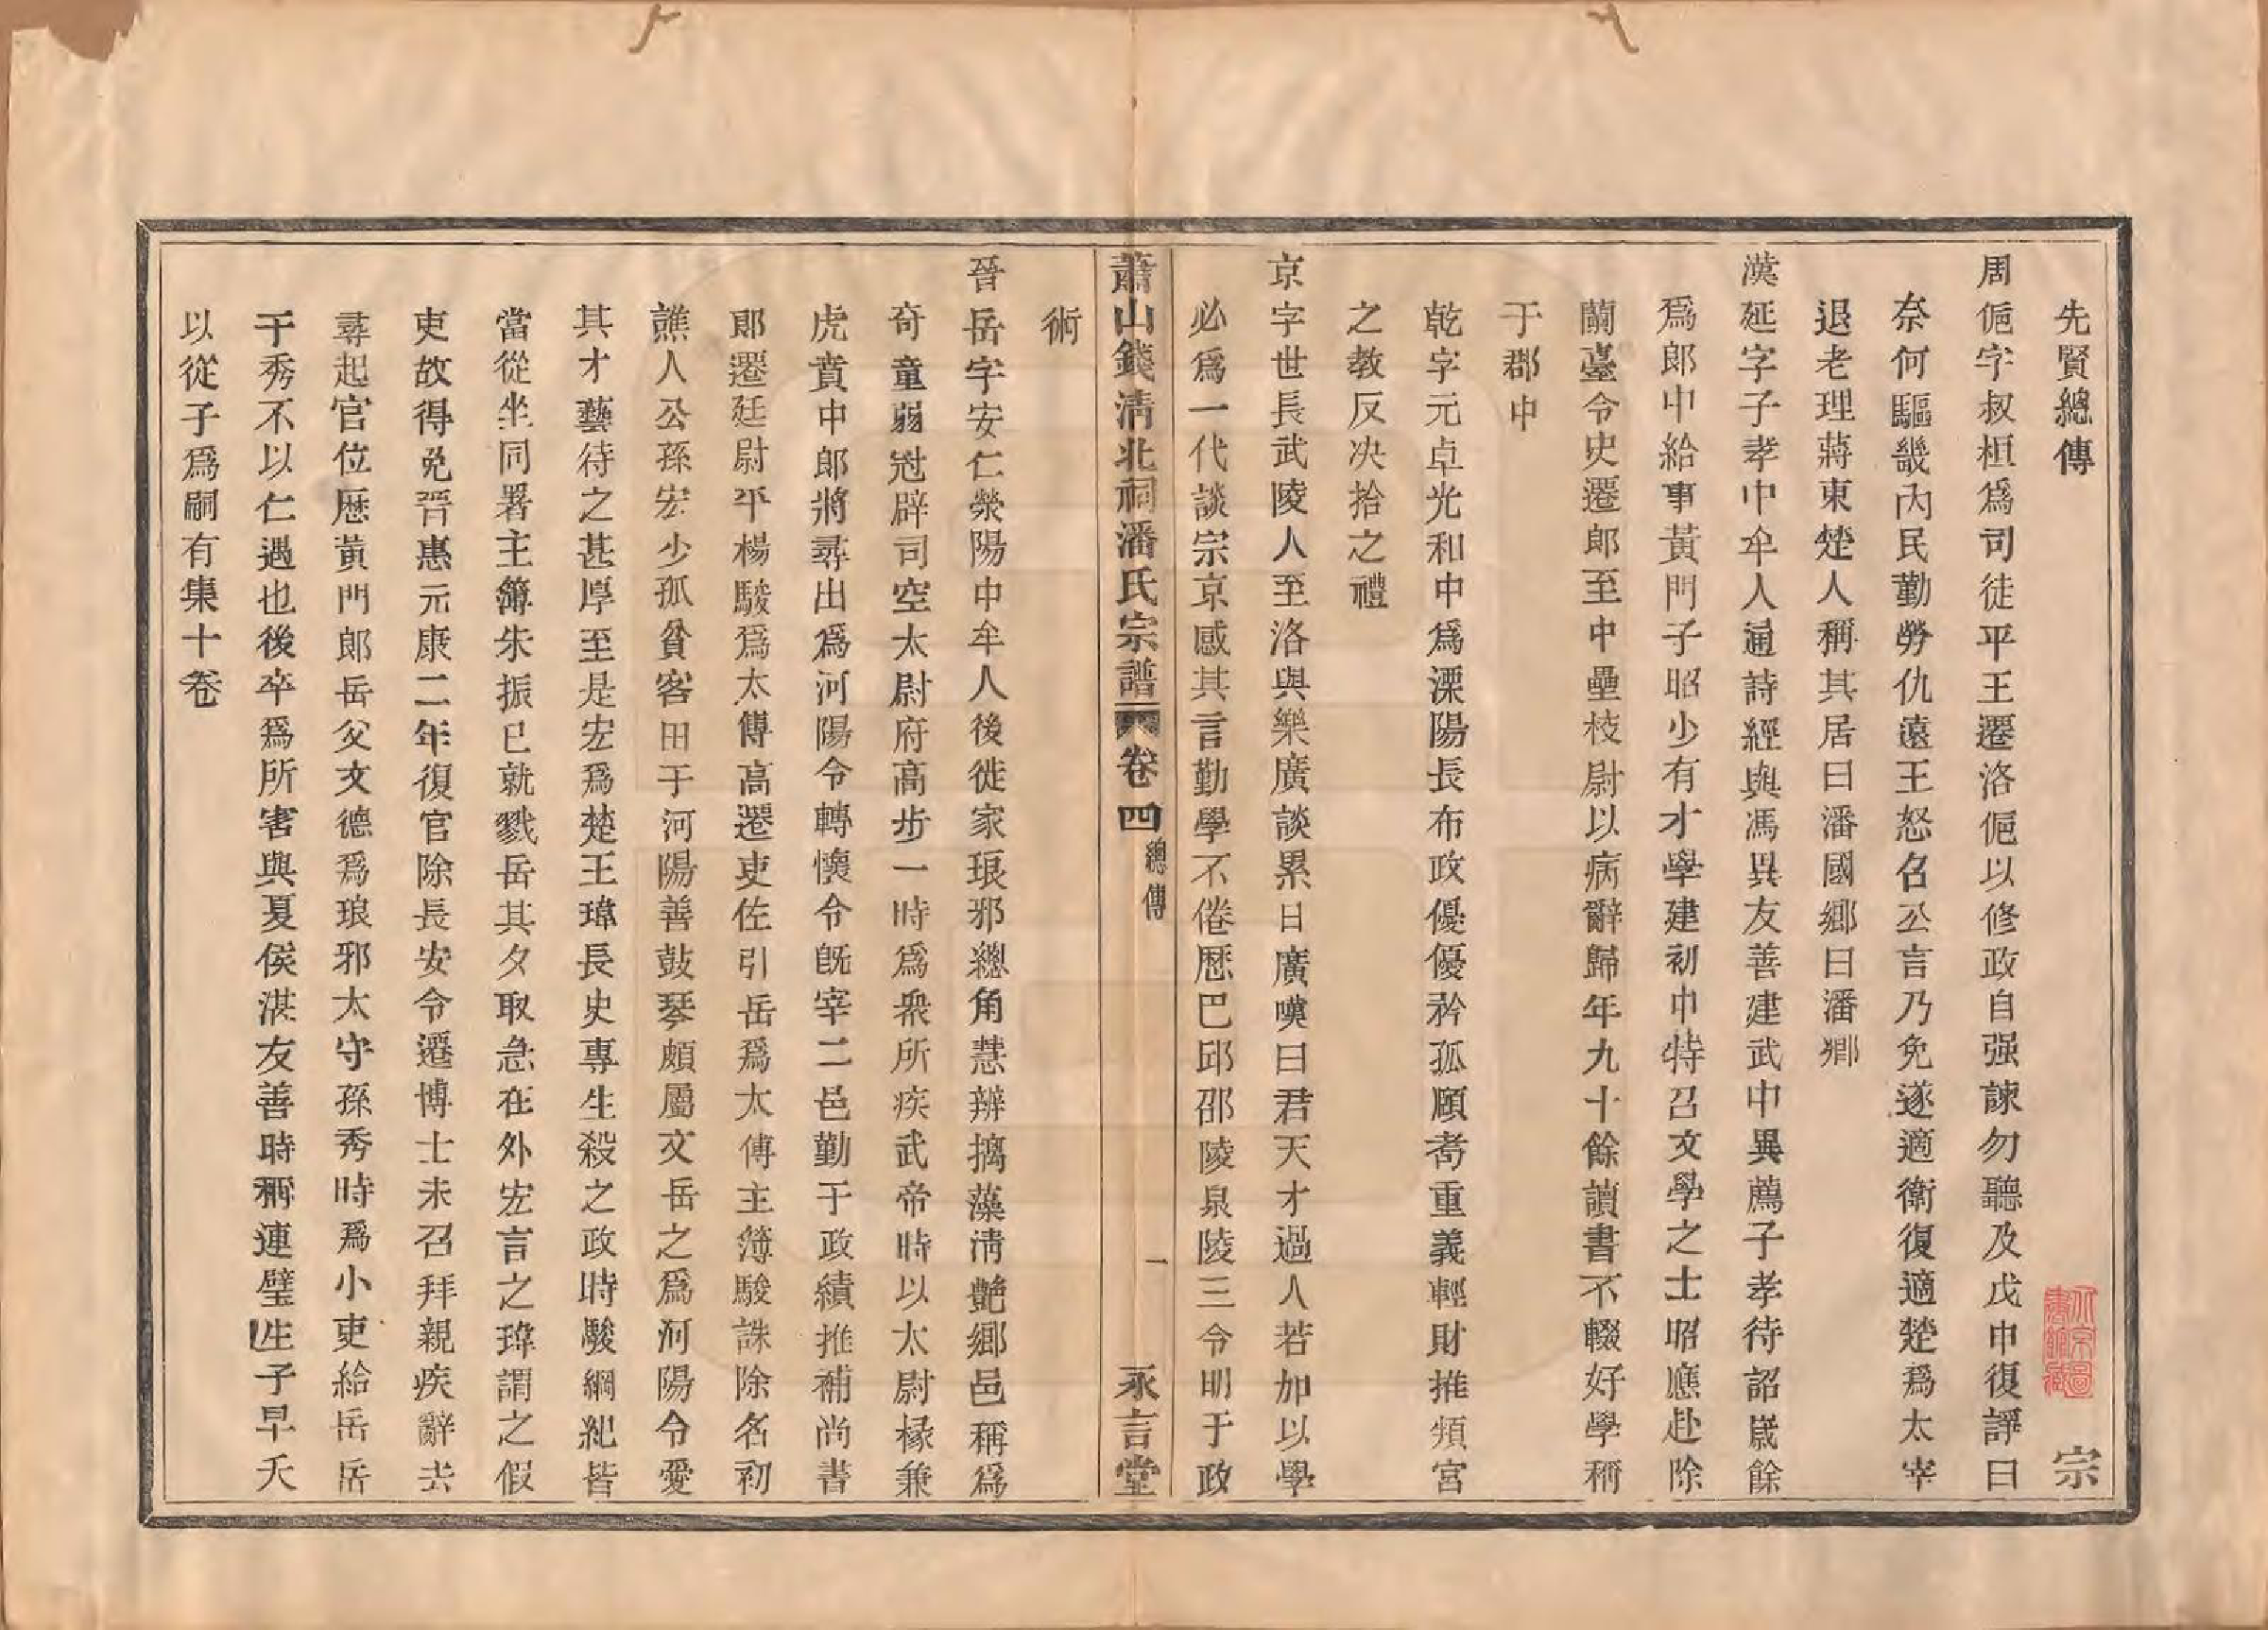 先賢總傳 宗
周㑌字叔桓爲司徒平王遷洛㑌以修政自强諫勿聽及戊申復諍曰
奈何驅畿內民勤勞仇遠王怒召公言乃免遂適衛復適楚爲太宰
退老理蔣東楚人稱其居曰潘國鄉曰潘鄉
漢延字子孝中牟人通詩經與馮異友善建武中異薦子孝待詔嵗餘
爲郎中給事黃門子昭少有才學建初中特召文學之士昭應赴除
蘭臺令史遷郎至中壘校尉以病辭歸年九十餘讀書不輟好學稱
于郡中
乾字元卓光和中爲溧陽長布政優優矜孤頤耇重義輕財推頖宮
之教反决拾之禮
京字世長武陵人至洛與樂廣談累日廣嘆曰君天才過人若加以學
必爲一代談宗京感其言勤學不倦歷巴邱邵陵泉陵三令明于政
蕭山錢清北祠潘氏宗譜 卷四 總傳 一 承言堂
術
晉岳字安仁滎陽中牟人後徙家琅邪總角慧辨摛藻淸艶鄉邑稱爲
奇童弱冠辟司空太尉府高步一時爲衆所疾武帝時以太尉椽兼
虎賁中郎將尋出爲河陽令轉懷令旣宰二邑勤于政績推補尚書
郎遷廷尉平楊駿爲太傅高遷吏佐引岳爲太傅主簿駿誅除名初
譙人公孫宏少孤貧客田于河陽善鼓琴頗屬文岳之爲河陽令愛
其才藝待之甚厚至是宏爲楚王瑋長史專生殺之政時駿綱紀皆
當從坐同署主簿朱振已就戮岳其夕取急在外宏言之瑋謂之假
吏故得免晉惠元康二年復官除長安令遷博士未召拜親疾辭去
尋起官位歷黃門郎岳父文德爲琅邪太守孫秀時爲小吏給岳岳
于秀不以仁遇也後卒爲所害與夏侯湛友善時稱連璧生子早夭
以從子爲嗣有集十卷
北京圖書館藏